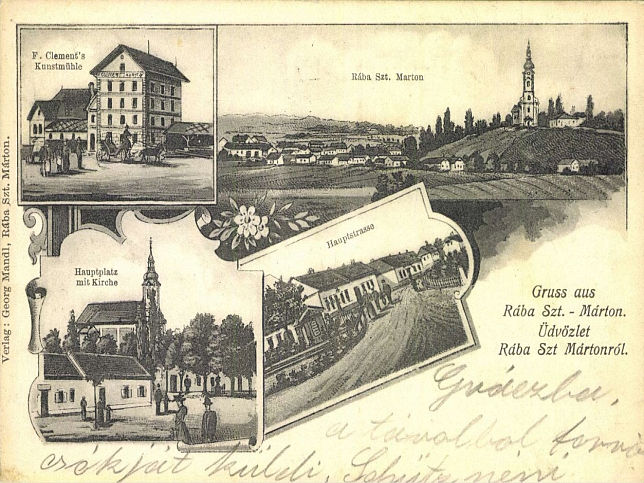 F. Clement's
Kunstmühle
Rába Szt. Marton
Verlag: Georg Mandl, Rába Szt. Márton.
Hauptplatz
mit Kirche
Hauptstrasse
Gruss aus
Rába Szt. - Márton.
Üdvözlet
Rába Szt Mártonról.
a távolból forró
csókját küldi, néni